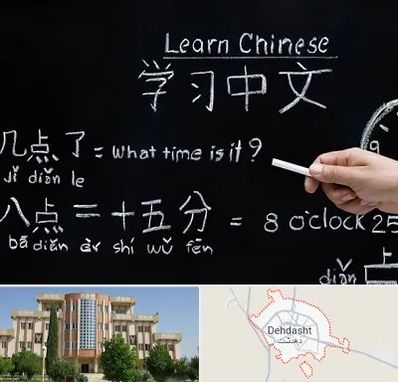 Learn Chinese
学习中文
几点了 = what time is it?
jǐ diǎn le
9
八点二十五分 = 8 o'clock 25
bā diǎn èr shí wǔ fēn
diǎn
Dehdasht
دهدشت